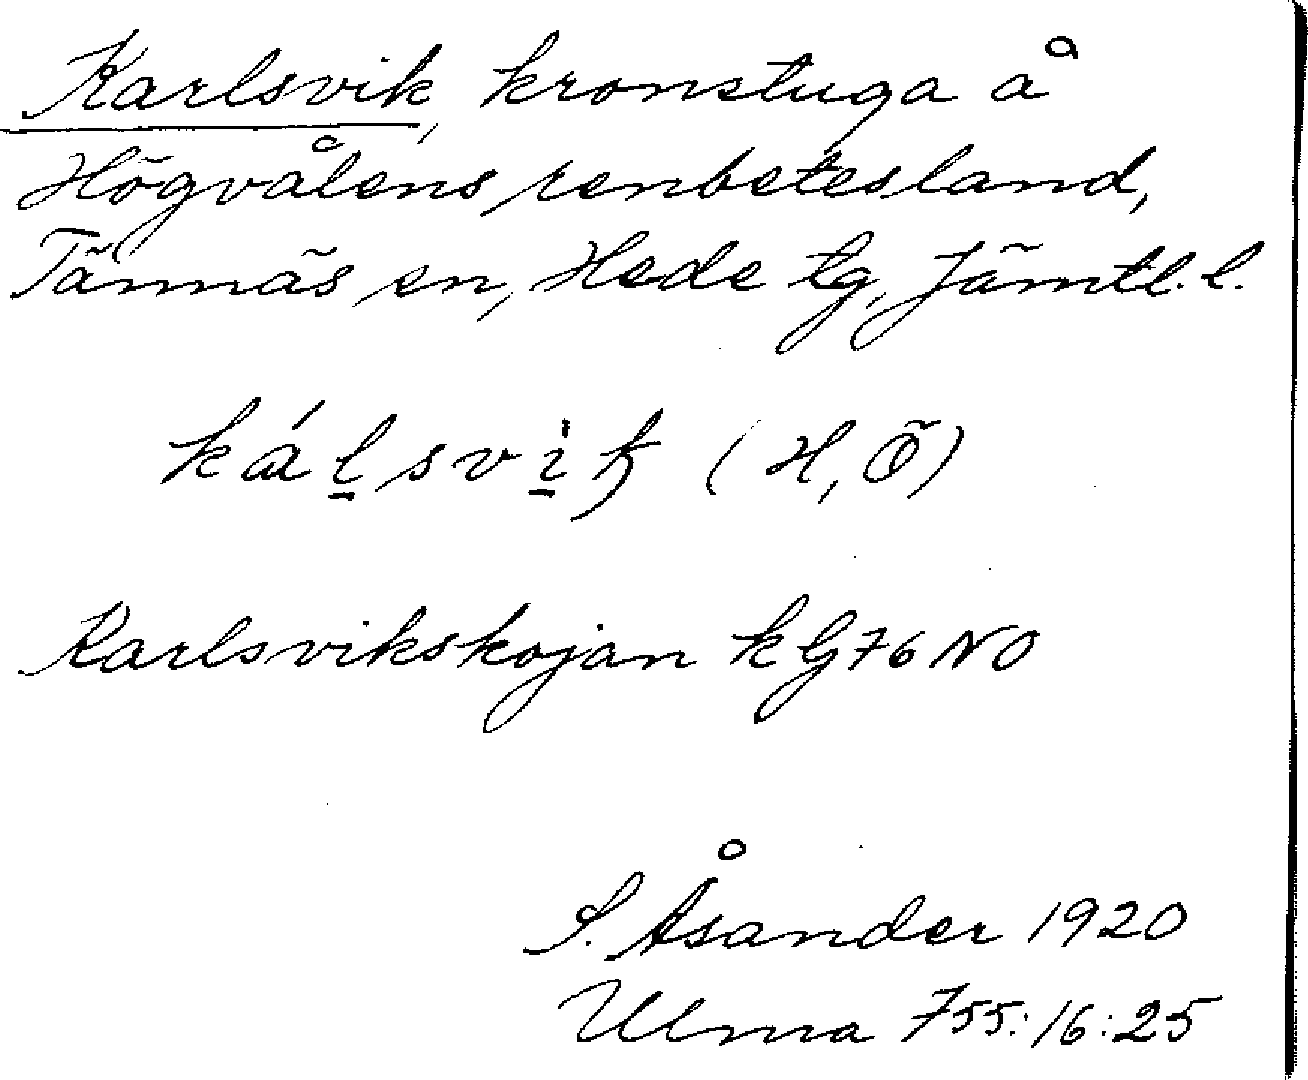 Karlsvik, kronstuga å
Högvålens renbetesland,
Tännäs sn, Hede tg, Jämtl. l.
káḻsvi̱k (H, Ö)
Karlsvikskojan kG76NO
S. Åsander 1920
Ulma 755:16:25